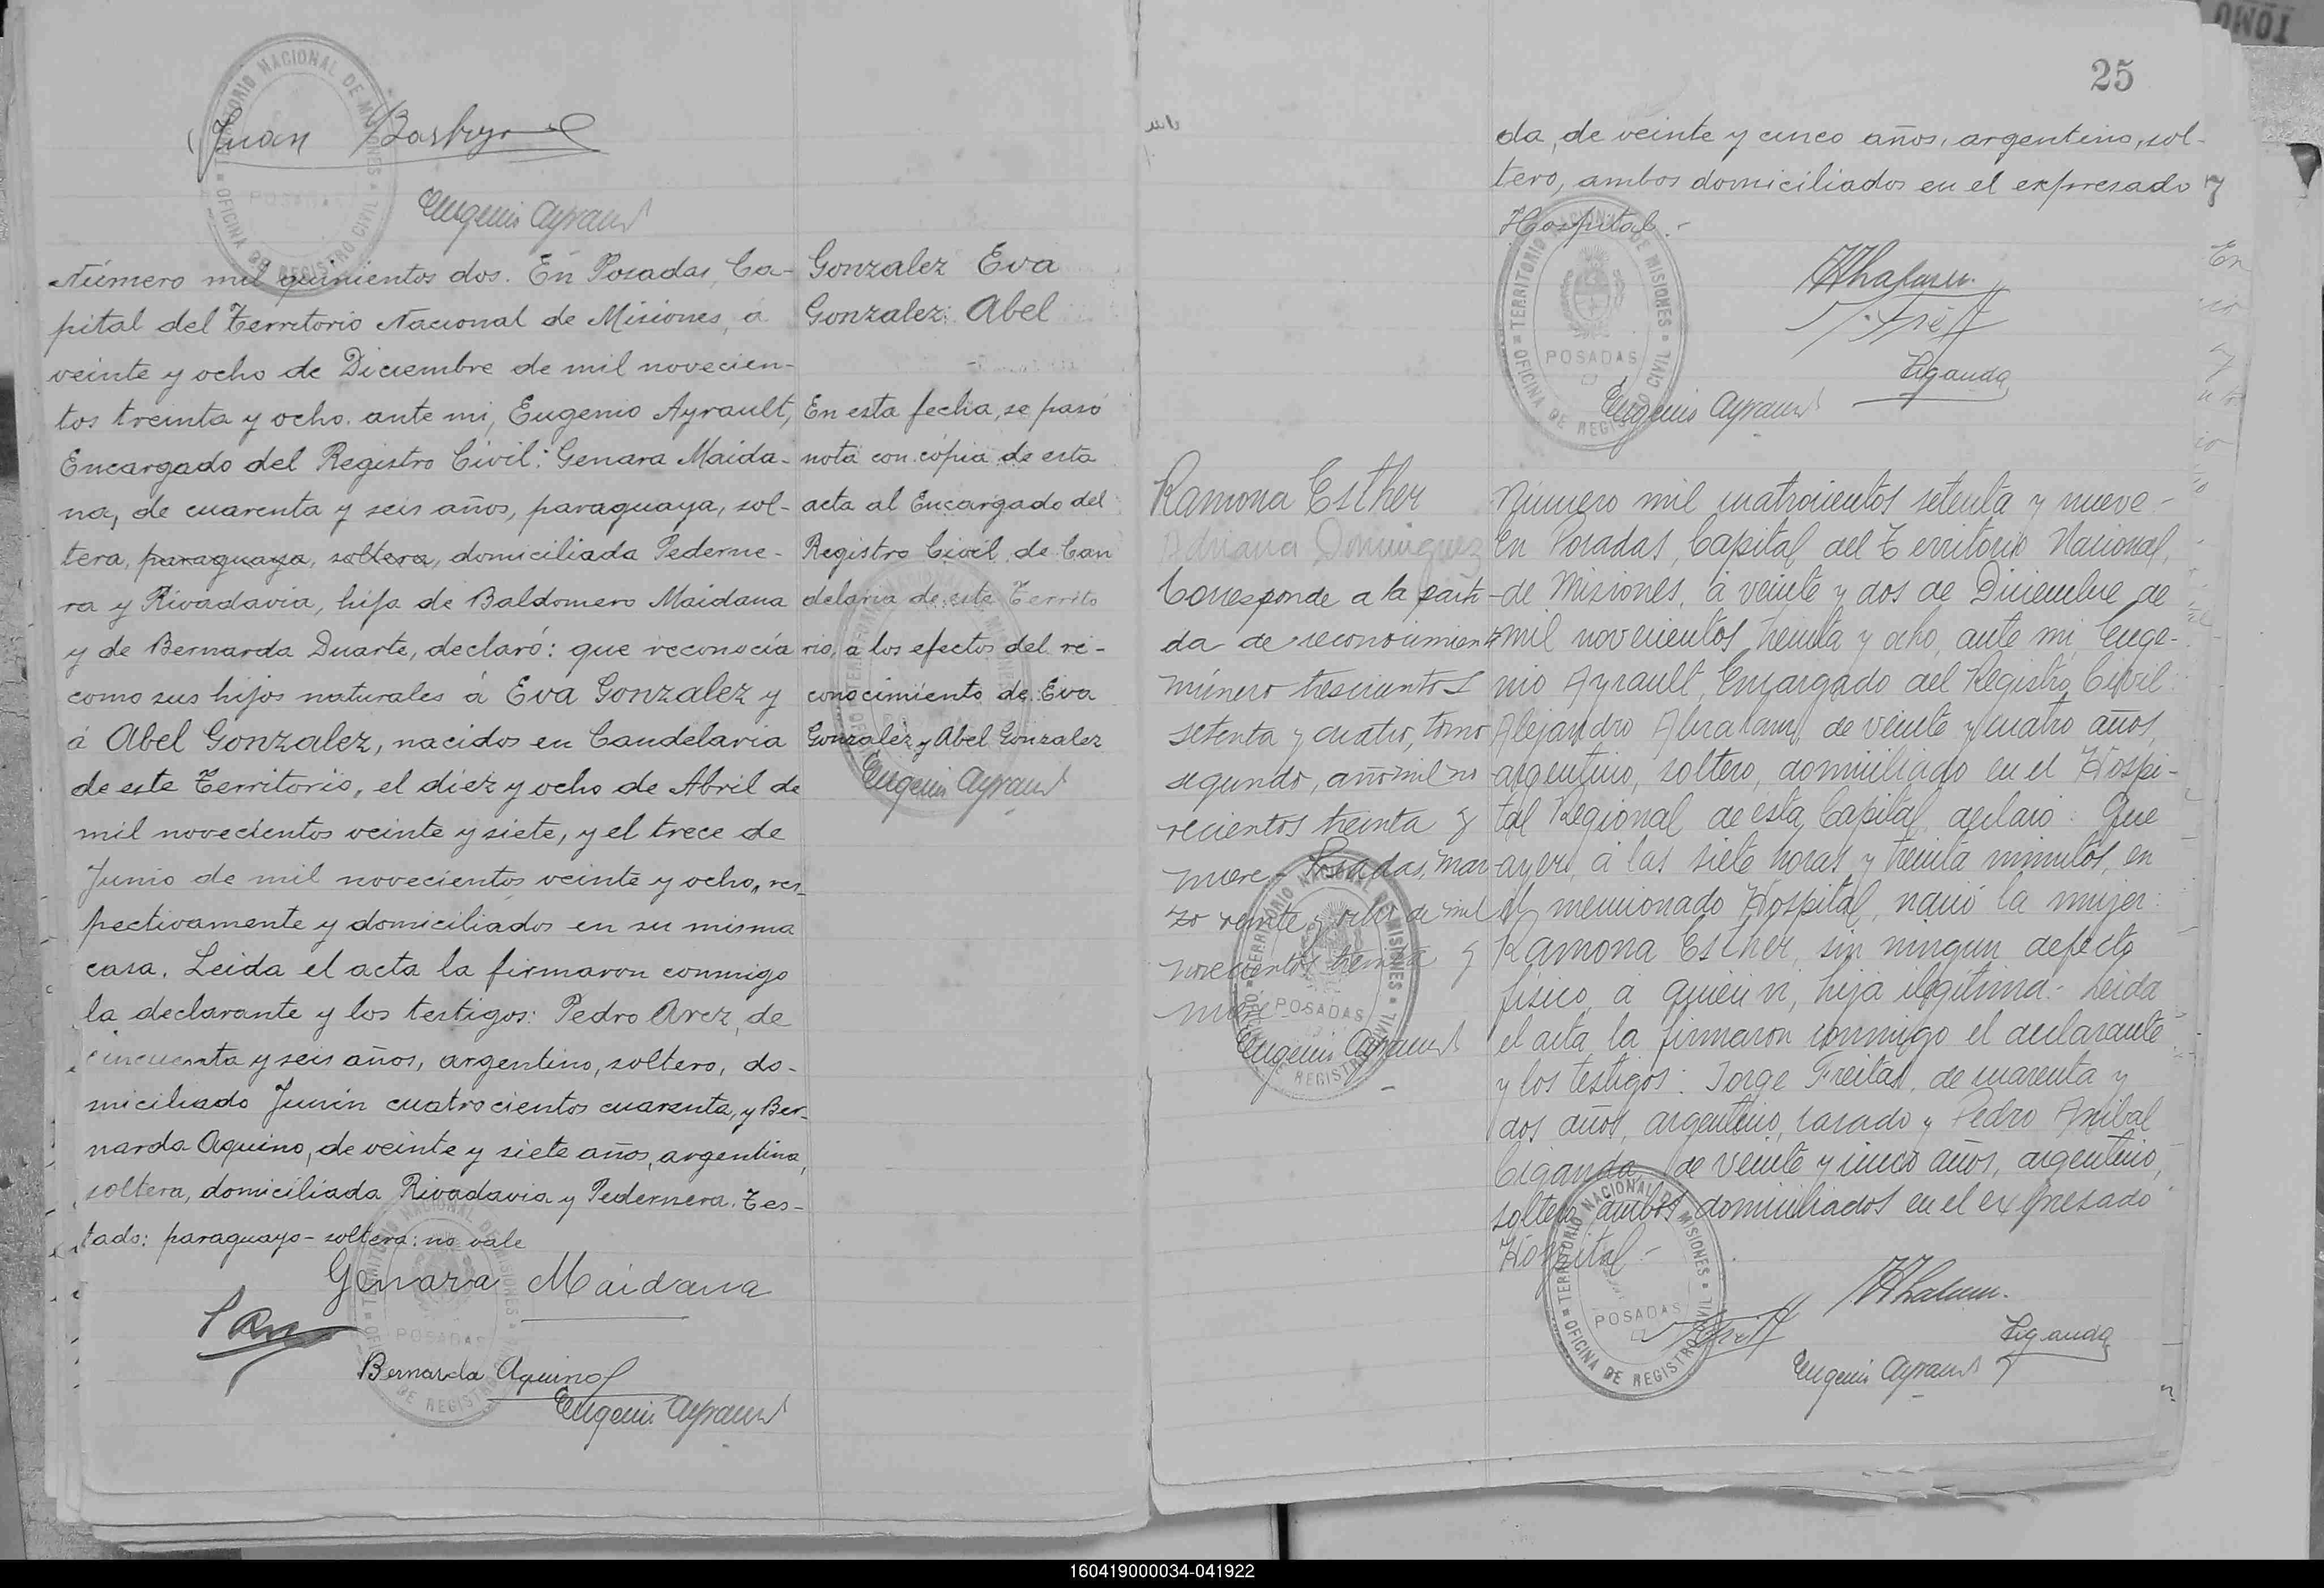 Juan
Eugenio Ayrault
Número mil quinientos dos. En Posadas, Ca-
pital del Territorio Nacional de Misiones, á
veinte y ocho de Diciembre de mil novecien-
tos treinta y ocho. ante mi, Eugenio Ayrault,
Encargado del Registro Civil: Genara Maida-
na, de cuarenta y seis años, paraguaya, sol-
tera, paraguaya, soltera, domiciliada Pederne-
ra y Rivadavia, hija de Baldomero Maidana
y de Bernarda Duarte, declaró: que reconocía
como sus hijos naturales á Eva Gonzalez y
á Abel Gonzalez, nacidos en Candelaria
de este Territorio, el diez y ocho de Abril de
mil novecientos veinte y siete, y el trece de
Junio de mil novecientos veinte y ocho, res-
pectivamente y domiciliados en su misma
casa. Leida el acta la firmaron conmigo
la declarante y los testigos: Pedro Arez, de
cincuenta y seis años, argentino, soltero, do-
miciliado Junín cuatrocientos cuarenta, y Ber-
narda Aquino, de veinte y siete años, argentina,
soltera, domiciliada Rivadavia y Pedernera. Tes-
tado: paraguaya - soltera: no vale
Genara Maidana
Bernarda Aquino
Eugenio Ayrault
Gonzalez Eva
Gonzalez Abel
En esta fecha, se pasó
nota con cópia de esta
acta al Encargado del
Registro Civil de Can
delaria de este Territo
rio, a los efectos del re-
conocimiento de Eva
Gonzalez y Abel Gonzalez
Eugenio Ayrault
TOMO
25
da, de veinte y cinco años, argentino, sol-
tero, ambos domiciliados en el expresado
Hospital.-
TERRITORIO NACIONAL DE MISIONES
POSADAS
OFICINA DE REGISTRO CIVIL
Ciganda
Eugenio Ayrault
Ramona Esther
Adriana Dominguez
Corresponde a la parti-
da de reconocimiento
número trescientos
setenta y cuatro, tomo
segundo, año mil no
vecientos treinta y
nueve - Posadas, mar
zo veinte y ocho de mil
novecientos treinta y
nueve
Eugenio Ayrault
Número mil cuatrocientos setenta y nueve -
En Posadas, Capital del Territorio Nacional,
de Misiones, á veinte y dos de Diciembre de
mil novecientos treinta y ocho, ante mi, Euge-
nio Ayrault, Encargado del Registro Civil:
Alejandro Abraham, de veinte y cuatro años,
argentino, soltero, domiciliado en el Hospi-
tal Regional de esta Capital, declaró: Que
ayer, á las siete horas y treinta minutos, en
el mencionado Hospital, nació la mujer:
Ramona Esther, sin ningun defecto
físico, a quien vi, hija ilegítima.- Leida
el acta la firmaron conmigo el declarante
y los testigos: Jorge Freitas, de cuarenta y
dos años, argentino, casado y Pedro Anibal
Ciganda, de veinte y cinco años, argentino,
soltero, ambos domiciliados en el expresado
Hospital.-
TERRITORIO NACIONAL DE MISIONES
POSADAS
OFICINA DE REGISTRO CIVIL
Ciganda
Eugenio Ayrault
160419000034-041922